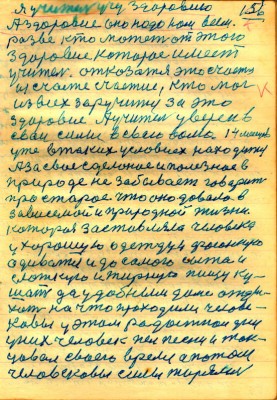 156
Я учитель учу здоровию
А здоровие оно надо нам всем.
разве кто может от этого
здоровие которое имеет
учитель. отказатся это счастя
и счастя счастие, кто мог
из вих заручити за это
здоровие. Я учитель уверен в
свои сили в своей воли
уже в таких условиех находити
А за свое сделоное и полезное в
природе не забивает говорит
про старое что оно довало в
зависемой и природной жизни.
которая заставляла человека
у хорошую одежду и фасонную
одивати и до самого сита и
слоткую и жирную пищу ку-
шат да удобними дома отди-
хат на что проходили челове-
кови у этом радостное дни
у них человек пел песни и тон-
цовал своего время а потом
человековы сили теряли